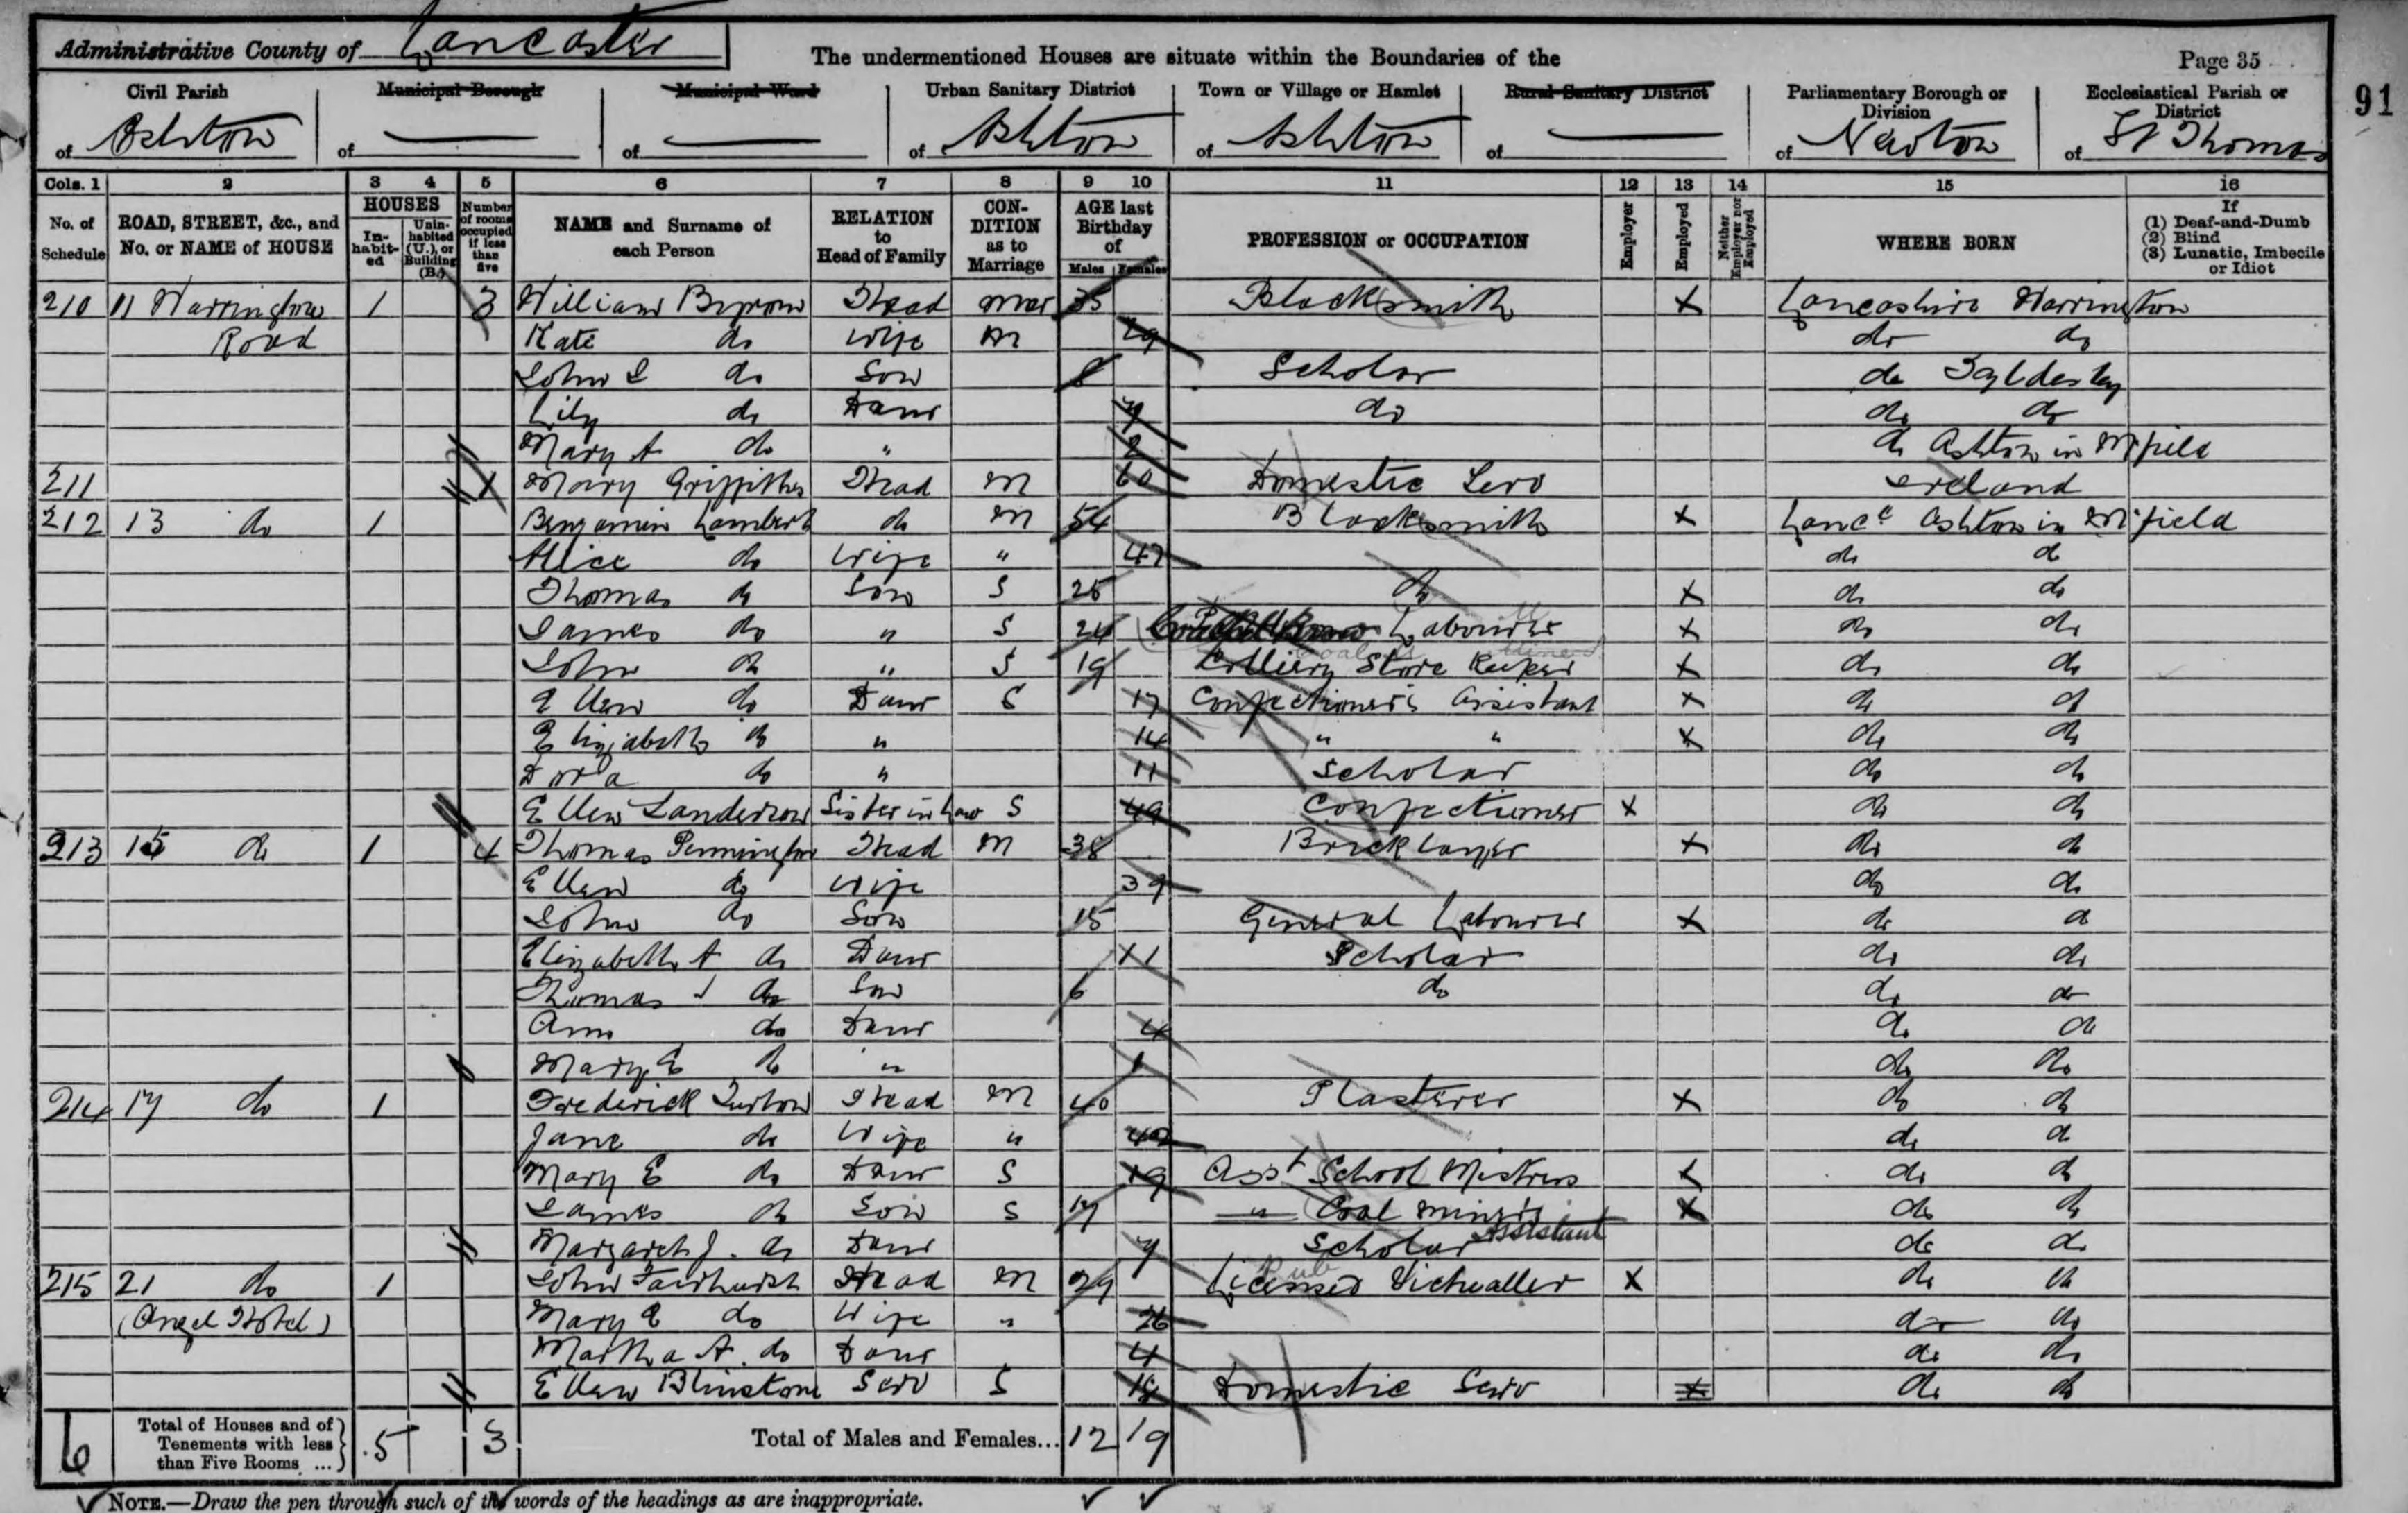 Administrative County of Lancaster
The undermentioned Houses are situate within the Boundaries of the
Page 35
91
Civil Parish of Ashton
Municipal Borough of —
Municipal Ward of —
Urban Sanitary District of Ashton
Town or Village or Hamlet of Ashton
Rural Sanitary District of —
Parliamentary Borough or Division of Newton
Ecclesiastical Parish or District of St Thomas
Cols. 1 2 3 4 5 6 7 8 9 10 11 12 13 14 15 16
No. of Schedule
ROAD, STREET, &c., and No. or NAME of HOUSE
HOUSES
In-habit-ed
Unin-habited (U.), or Building (B.)
Number of rooms occupied if less than five
NAME and Surname of each Person
RELATION to Head of Family
CON-DITION as to Marriage
AGE last Birthday of
Males Females
PROFESSION or OCCUPATION
Employer
Employed
Neither Employer nor Employed
WHERE BORN
If
(1) Deaf-and-Dumb
(2) Blind
(3) Lunatic, Imbecile or Idiot
210 11 Warrington 1 3 William Byrom Head Mar 35 Blacksmith X Lancashire Warrington
Road Kate do Wife M 29 do do
John do Son 8 Scholar do Tyldesley
Lily do Daur 7 do do do
Mary A do " 2 do Ashton in M'field
211 1 Mary Griffiths Head M 60 Domestic Serv Ireland
212 13 do 1 Benjamin Lambert do M 54 Blacksmith X Lanc Ashton in M'field
Alice do Wife " 47 do do
Thomas do Son S 25 do X do do
James do " S 24 Labourer X do do
John do " S 19 Colliery Store Keeper X do do
Ellen do Daur S 17 Confectioner's Assistant X do do
Elizabeth do " 14 " " X do do
Dora do " 11 Scholar do do
Ellen Sanderson Sister in law S 49 Confectioner X do do
213 15 do 1 4 Thomas Pennington Head M 38 Bricklayer X do do
Ellen do Wife 39 do do
John do Son 15 General Labourer X do do
Elizabeth A do Daur 11 Scholar do do
Thomas do Son 6 do do do
Ann do Daur 4 do do
Mary E do " 1 do do
214 17 do 1 Frederick Turton Head M 40 Plasterer X do do
Jane do Wife " do do
Mary E do Daur S 19 Asst School Mistress X do do
James do Son S 17 " Coal miner's Assistant X do do
Margaret J. do Daur 7 Scholar do do
215 21 do 1 John Fairhurst Head M 29 Licensed Victualler X do do
Pub
(Angel Hotel) Mary E do Wife " 26 do do
Martha A. do Daur 4 do do
Ellen Blinstone Serv S 18 Domestic Serv X do do
6 Total of Houses and of Tenements with less than Five Rooms ... 5 3 Total of Males and Females... 12 19
NOTE.—Draw the pen through such of the words of the headings as are inappropriate.